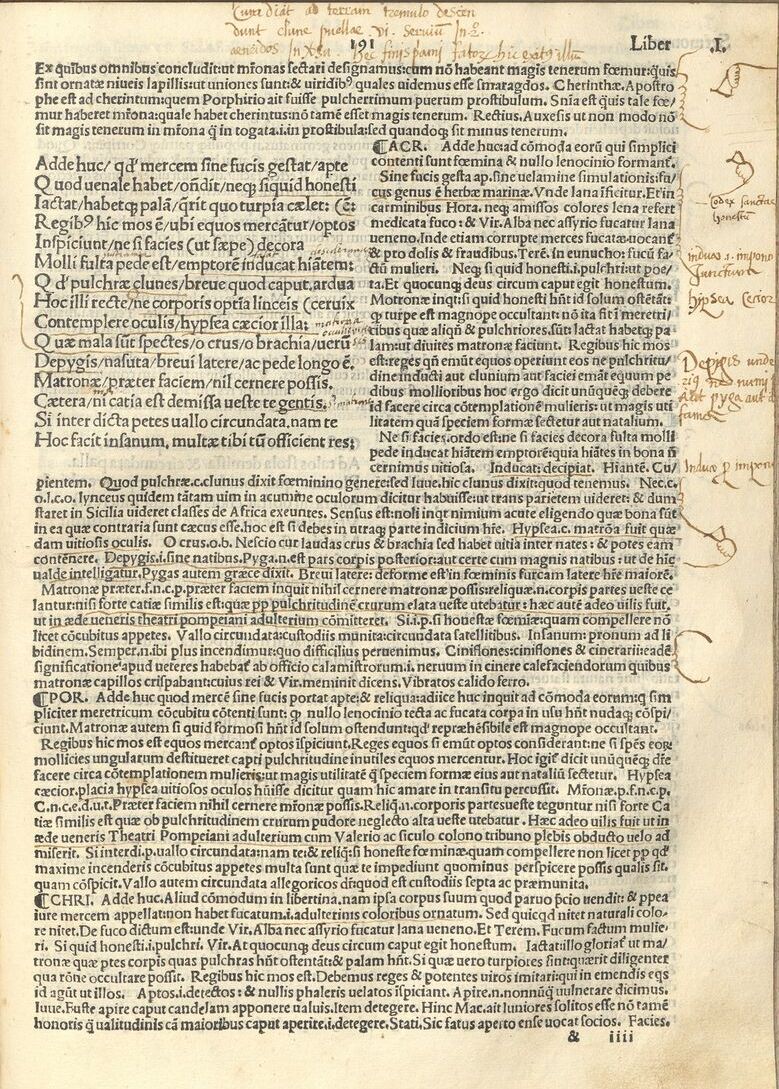 dunt clune puellae vi. seruiũ In
191
Liber .I.
Ex quibus omnibus concludit:ut mřonas sectari designamus:cum nõ habeant magis tenerum fœmur:quis
sint ornatæ niueis lapillis:ut uniones sunt:& uiridibꝰ quales uidemus esse smaragdos. Cherinthæ. Apostro
phe est ad cherintum:quem Porphirio ait fuisse pulcherrimum puerum prostibulum. Sñia est quis tale fœ/
mur haberet mřona:quale habet cherintus:nõ tamẽ esset magis tenerum. Rectius. Auxesis ut non modo nõ
sit magis tenerum in mřona q̃ in togata.i.in prostibula:sed quandoq; sit minus tenerum.
Adde huc/ qd' mercem sine fucis gestat/apte
Quod uenale habet/oñdit/neq; siquid honesti
Iactat/habetq; palã/q̃rit quo turpia cælet: (ẽ:
Regibꝰ hic mos ẽ/ubi equos mercãtur/optos
Inspiciunt/ne si facies (ut sæpe) decora
Molli fulta pede est/emptorẽ inducat hiãtem:
Q d' pulchræ clunes/breue quod caput.ardua
Hoc illi recte/ne corporis optĩa linceis (ceruix
Contemplere oculis/hypsea cæcior illa:
Quæ mala sũt spectes/o crus/o brachia/uerũ
Depygis/nasuta/breui latere/ac pede longo ẽ.
Matronæ/præter faciem/nil cernere possis.
Cætera/ni catia est demissa ueste te gentis.
Si inter dicta petes uallo circundata.nam te
Hoc facit insanum, multæ tibi tũ officient res:
⸿ACR. Adde huc:ad cõmoda eorũ qui simplici
contenti sunt fœmina & nullo lenocinio formant̃.
Sine fucis gesta ap.sine uelamine simulationis:fu
cus genus ẽ herbæ marinæ. Vnde lana ĩficitur. Et in
carminibus Hora. neq; amissos colores lena refert
medicata fuco: & Vir. Alba nec assyrio fucatur lana
ueneno. Inde etiam corrupte merces fucatæ uocant̃
& pro dolis & fraudibus. Terẽ. in eunucho: fucũ fa/
ctũ mulieri. Neq; si quid honesti.i.pulchri:ut poe/
ta. Et quocunq; deus circum caput egit honestum.
Motronæ inqt:si quid honesti hñt id solum ostẽtãt:
q̃ turpe est magnope occultant: nõ ita sit ĩ meretri/
cibus quæ aliqñ & pulchriores.sũt: iactat habetq; pa/
lam:ut diuites matronæ faciunt. Regibus hic mos
est:reges qñ emũt equos operiunt eos ne pulchritu/
dine inducti aut clunium aut faciei emãt equum pe
dibus mollioribus hoc ergo dicit unũquẽq; debere
id facere circa cõtemplationẽ mulieris: ut magis uti
litatem quã speciem formæ sectetur aut natalium.
Ne si facies.ordo est:ne si facies decora fulta molli
pede inducat hiãtem emptorẽ:quia hiãtes in bona ñ
cernimus uitiosa. Inducat: decipiat. Hiantẽ. Cu/
pientem. Quod pulchræ.c.clunus dixit fœminino genere:sed Iuue.hic clunus dixit:quod tenemus. Nec.c.
o.l.c.o. lynceus quidem tãtam uim in acumine oculorum dicitur habuisse:ut trans parietem uideret: & dum
staret in Sicilia uideret classes de Africa exeuntes. Sensus est:noli inqt nimium acute eligendo quæ bona sũt
in ea quæ contraria sunt cæcus esse.hoc est si debes in utraq; parte indicium hře. Hypsea.c. matrõa fuit quæ
dam uitiosis oculis. O crus.o.b. Nescio cur laudas crus & brachia sed habet uitia inter nates: & potes eam
contẽnere. Depygis.i.sine natibus. Pyga.n.est pars corpis posterior:aut certe cum magnis natibus : ut de hic
ualde intelligatur. Pygas autem græce dixit. Breui latere: deforme est in fœminis furcam latere hře maiorẽ.
Matronæ præter.f.n.c.p.præter faciem inquit nihil cernere matronæ possis:reliquæ.n.corpis partes ueste ce
lantur:nisi forte catiæ similis est:quæ pp pulchritudinẽ crurum elata ueste utebatur : hæc autẽ adeo uilis fuit.
ut in æde ueneris theatri pompeiani adulterium cõmitteret. Si.i.p.si honestæ fœmiæ:quam compellere nõ
licet cõcubitus appetes. Vallo circundata:custodiis munita:circundata satellitibus. Insanum: pronum ad li
bidinem. Semper.n.ibi plus incendimur:quo difficilius peruenimus. Cinislones:cinislones & cinerarii:eadẽ
significatione apud ueteres habebãt ab officio calamistrorum.i.neruum in cinere calefaciendorum quibus
matronæ capillos crispabant:cuius rei & Vir.meminit dicens. Vibratos calido ferro.
⸿POR. Adde huc quod mercẽ sine fucis portat apte:& reliqua:adiice huc inquit ad cõmoda eorum:q sim
pliciter meretricum cõcubitu cõtenti sunt: q̃ nullo lenocinio tecta ac fucata corpa in usu hñt nudaq; cõspi/
ciunt. Matronæ autem si quid formosi hñt id solum ostendunt:qd' repræhẽsibile est magnope occultant.
Regibus hic mos est equos mercant̃ optos ĩspiciunt. Reges equos si emũt optos considerant:ne si spẽs eoꝝ
mollicies ungularum destitueret capti pulchritudine inutiles equos mercentur. Hoc igit̃ dicit unũquẽq; dře
facere circa cõtemplationem mulieris:ut magis utilitatẽ q̃ speciem formæ eius aut nataliũ sectetur. Hypsea
cæcior.placia hypsea uitiosos oculos hũisse dicitur quam hic amare in transitu percussit. Mřonæ.p.f.n.c.p.
C.n.c.e.d.u.t. Præter faciem nihil cernere mřonæ possis. Reliq̃.n.corporis partes ueste teguntur nisi forte Ca
tiæ similis est quæ ob pulchritudinem crurum pudore neglecto alta ueste utebatur. Hæc adeo uilis fuit ut in
æde ueneris Theatri Pompeiani adulterium cum Valerio ac siculo colono tribuno plebis obducto uelo ad
miserit. Si interdi.p.uallo circundata:nam te:& reliq̃:si honestæ fœminæ.quam compellere non licet pp qd'
maxime incenderis cõcubitus appetes multa sunt quæ te impediunt quominus perspicere possis qualis sit.
quam cõspicit. Vallo autem circundata allegoricos dr:quod est custodiis septa ac præmunita.
⸿CHRI. Adde huc. Aliud cõmodum in libertina.nam ipsa corpus suum quod paruo p̃cio uendit: & ppea
iure mercem appellat:non habet fucatum.i.adulterinis coloribus ornatum. Sed quicqd nitet naturali colo/
re nitet. De fuco dictum est:unde Vir. Alba nec assyrio fucatur lana ueneno. Et Terem. Fucum factum mulie/
ri. Si quid honesti.i.pulchri. Vir. At quocunq; deus circum caput egit honestum. Iactat:illo gloriat̃ ut ma/
tronæ quæ ptes corpis quas pulchras hñt ostentãt:& palam hñt. Si quæ uero turpiores sint:quærit diligenter
qua rõne occultare possit. Regibus hic mos est. Debemus reges & potentes uiros imitari:qui in emendis eqs
id agũt ut illos. Aptos.i.detectos: & nullis phaleris uelatos ĩspiciant. Apire.n.nonnũq̃ uulnerare dicimus.
Iuue. Fuste apire caput candelam apponere ualuis. Item detegere. Hinc Mac.ait Iuniores solitos esse nõ tamẽ
honoris q̃ ualitudinis cã maioribus caput aperire.i.detegere. Stati. Sic fatus aperto ense uocat socios. Facies.
& iiii